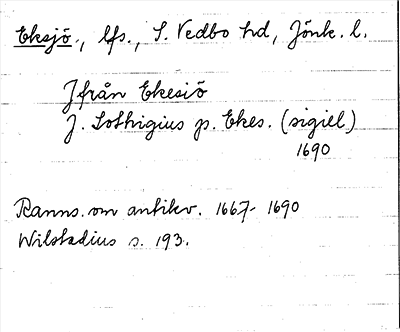 Eksjö., lfs., S. Vedbo hd, Jönk. l.
Ifrån Ekesiö
J. Lothigius p. Ekes. (sigiel)
1690
Ranns. om antikv. 1667-1690
Wilstadius s. 193.